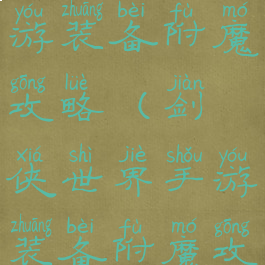 yóu zhuāng bèi fù mó
游装备附魔
gōng lüè jiàn
攻略（剑
xiá shì jiè shǒu yóu
侠世界手游
zhuāng bèi fù mó gōng
装备附魔攻